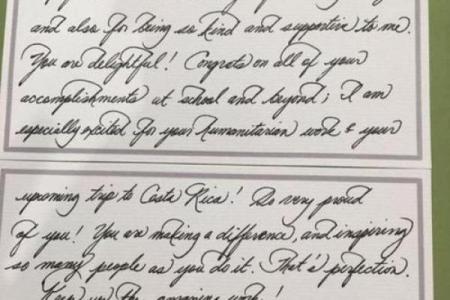 and also for being so kind and supportive to me.
You are delightful! Congrats on all of your
accomplishments at school and beyond; I am
especially excited for your humanitarian work & your
upcoming trip to Costa Rica! So very proud
of you! You are making a difference, and inspiring
so many people as you do it. That's perfection.
Keep up the amazing work!